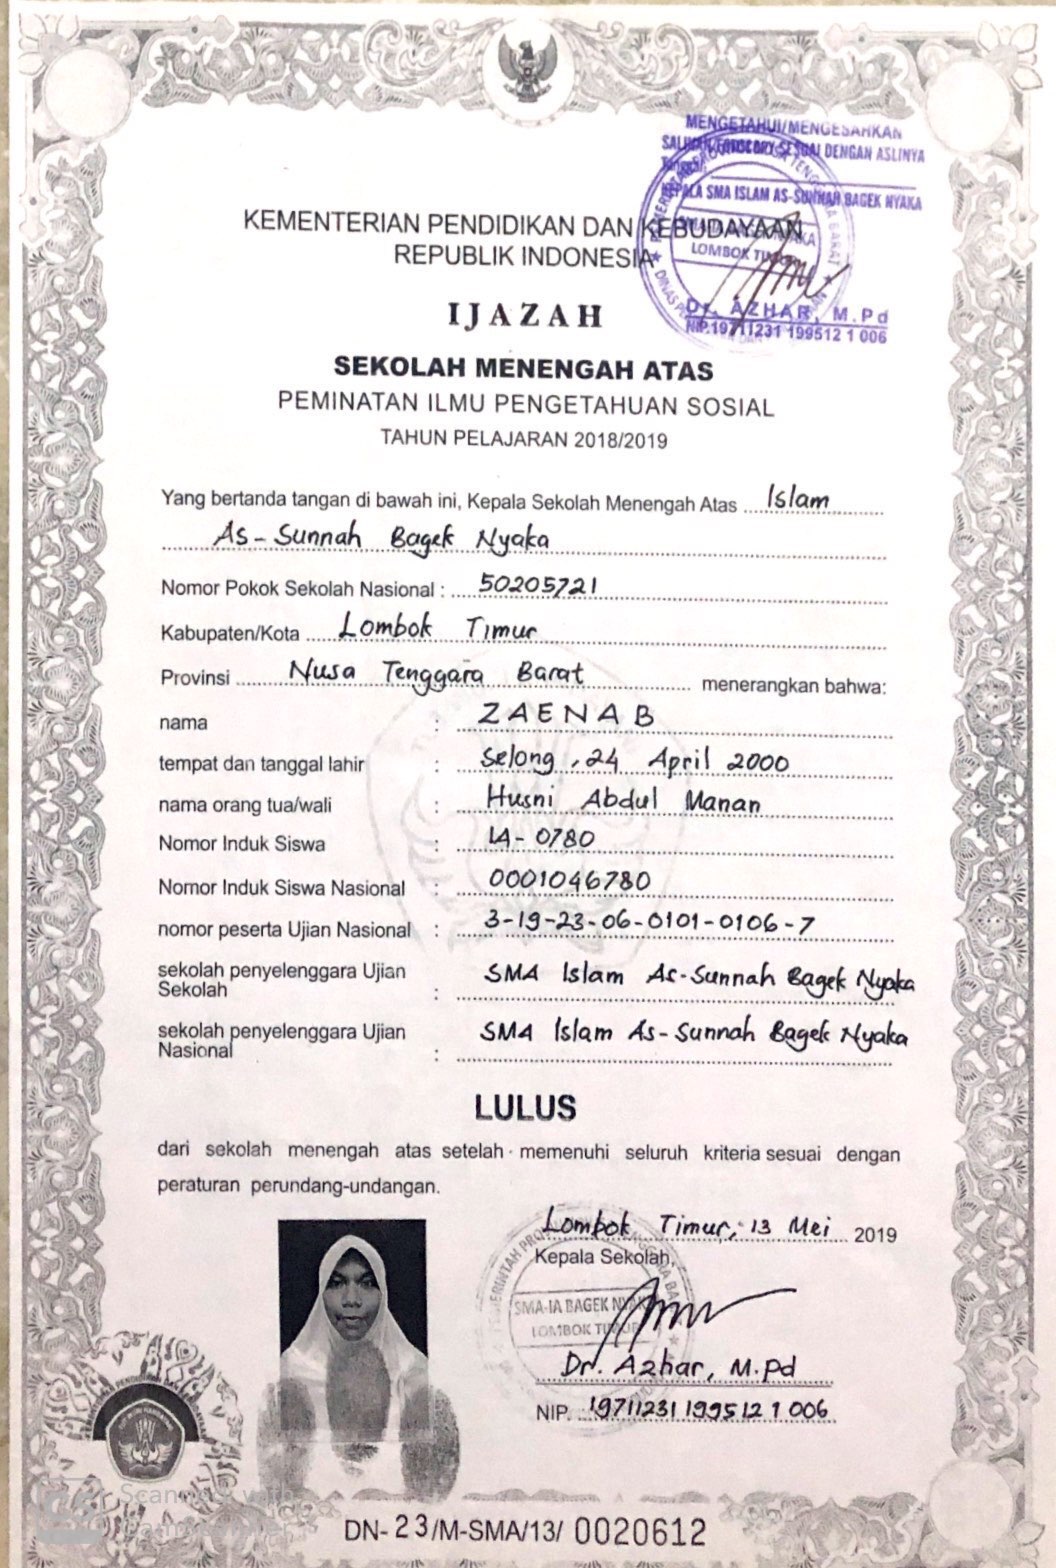 MENGETAHUI/MENGESAHKAN
SALINAN FOTOCOPY SESUAI DENGAN ASLINYA
KEPALA SMA ISLAM AS-SUNNAH BAGEK NYAKA
LOMBOK TIMUR
Dr. AZHAR, M.Pd
NIP.19711231 199512 1 006
KEMENTERIAN PENDIDIKAN DAN KEBUDAYAAN
REPUBLIK INDONESIA
IJAZAH
SEKOLAH MENENGAH ATAS
PEMINATAN ILMU PENGETAHUAN SOSIAL
TAHUN PELAJARAN 2018/2019
Yang bertanda tangan di bawah ini, Kepala Sekolah Menengah Atas Islam
As-Sunnah Bagek Nyaka
Nomor Pokok Sekolah Nasional : 50205721
Kabupaten/Kota Lombok Timur
Provinsi Nusa Tenggara Barat menerangkan bahwa:
nama : ZAENAB
tempat dan tanggal lahir : Selong, 24 April 2000
nama orang tua/wali : Husni Abdul Manan
Nomor Induk Siswa : IA-0780
Nomor Induk Siswa Nasional : 0001046780
nomor peserta Ujian Nasional : 3-19-23-06-0101-0106-7
sekolah penyelenggara Ujian
Sekolah : SMA Islam As-Sunnah Bagek Nyaka
sekolah penyelenggara Ujian
Nasional : SMA Islam As-Sunnah Bagek Nyaka
LULUS
dari sekolah menengah atas setelah memenuhi seluruh kriteria sesuai dengan
peraturan perundang-undangan.
Lombok Timur, 13 Mei 2019
Kepala Sekolah,
SMA-IA BAGEK NYAKA
LOMBOK TIMUR
Dr. Azhar, M.Pd
NIP. 19711231 199512 1 006
Scanned with
DN-23/M-SMA/13/ 0020612